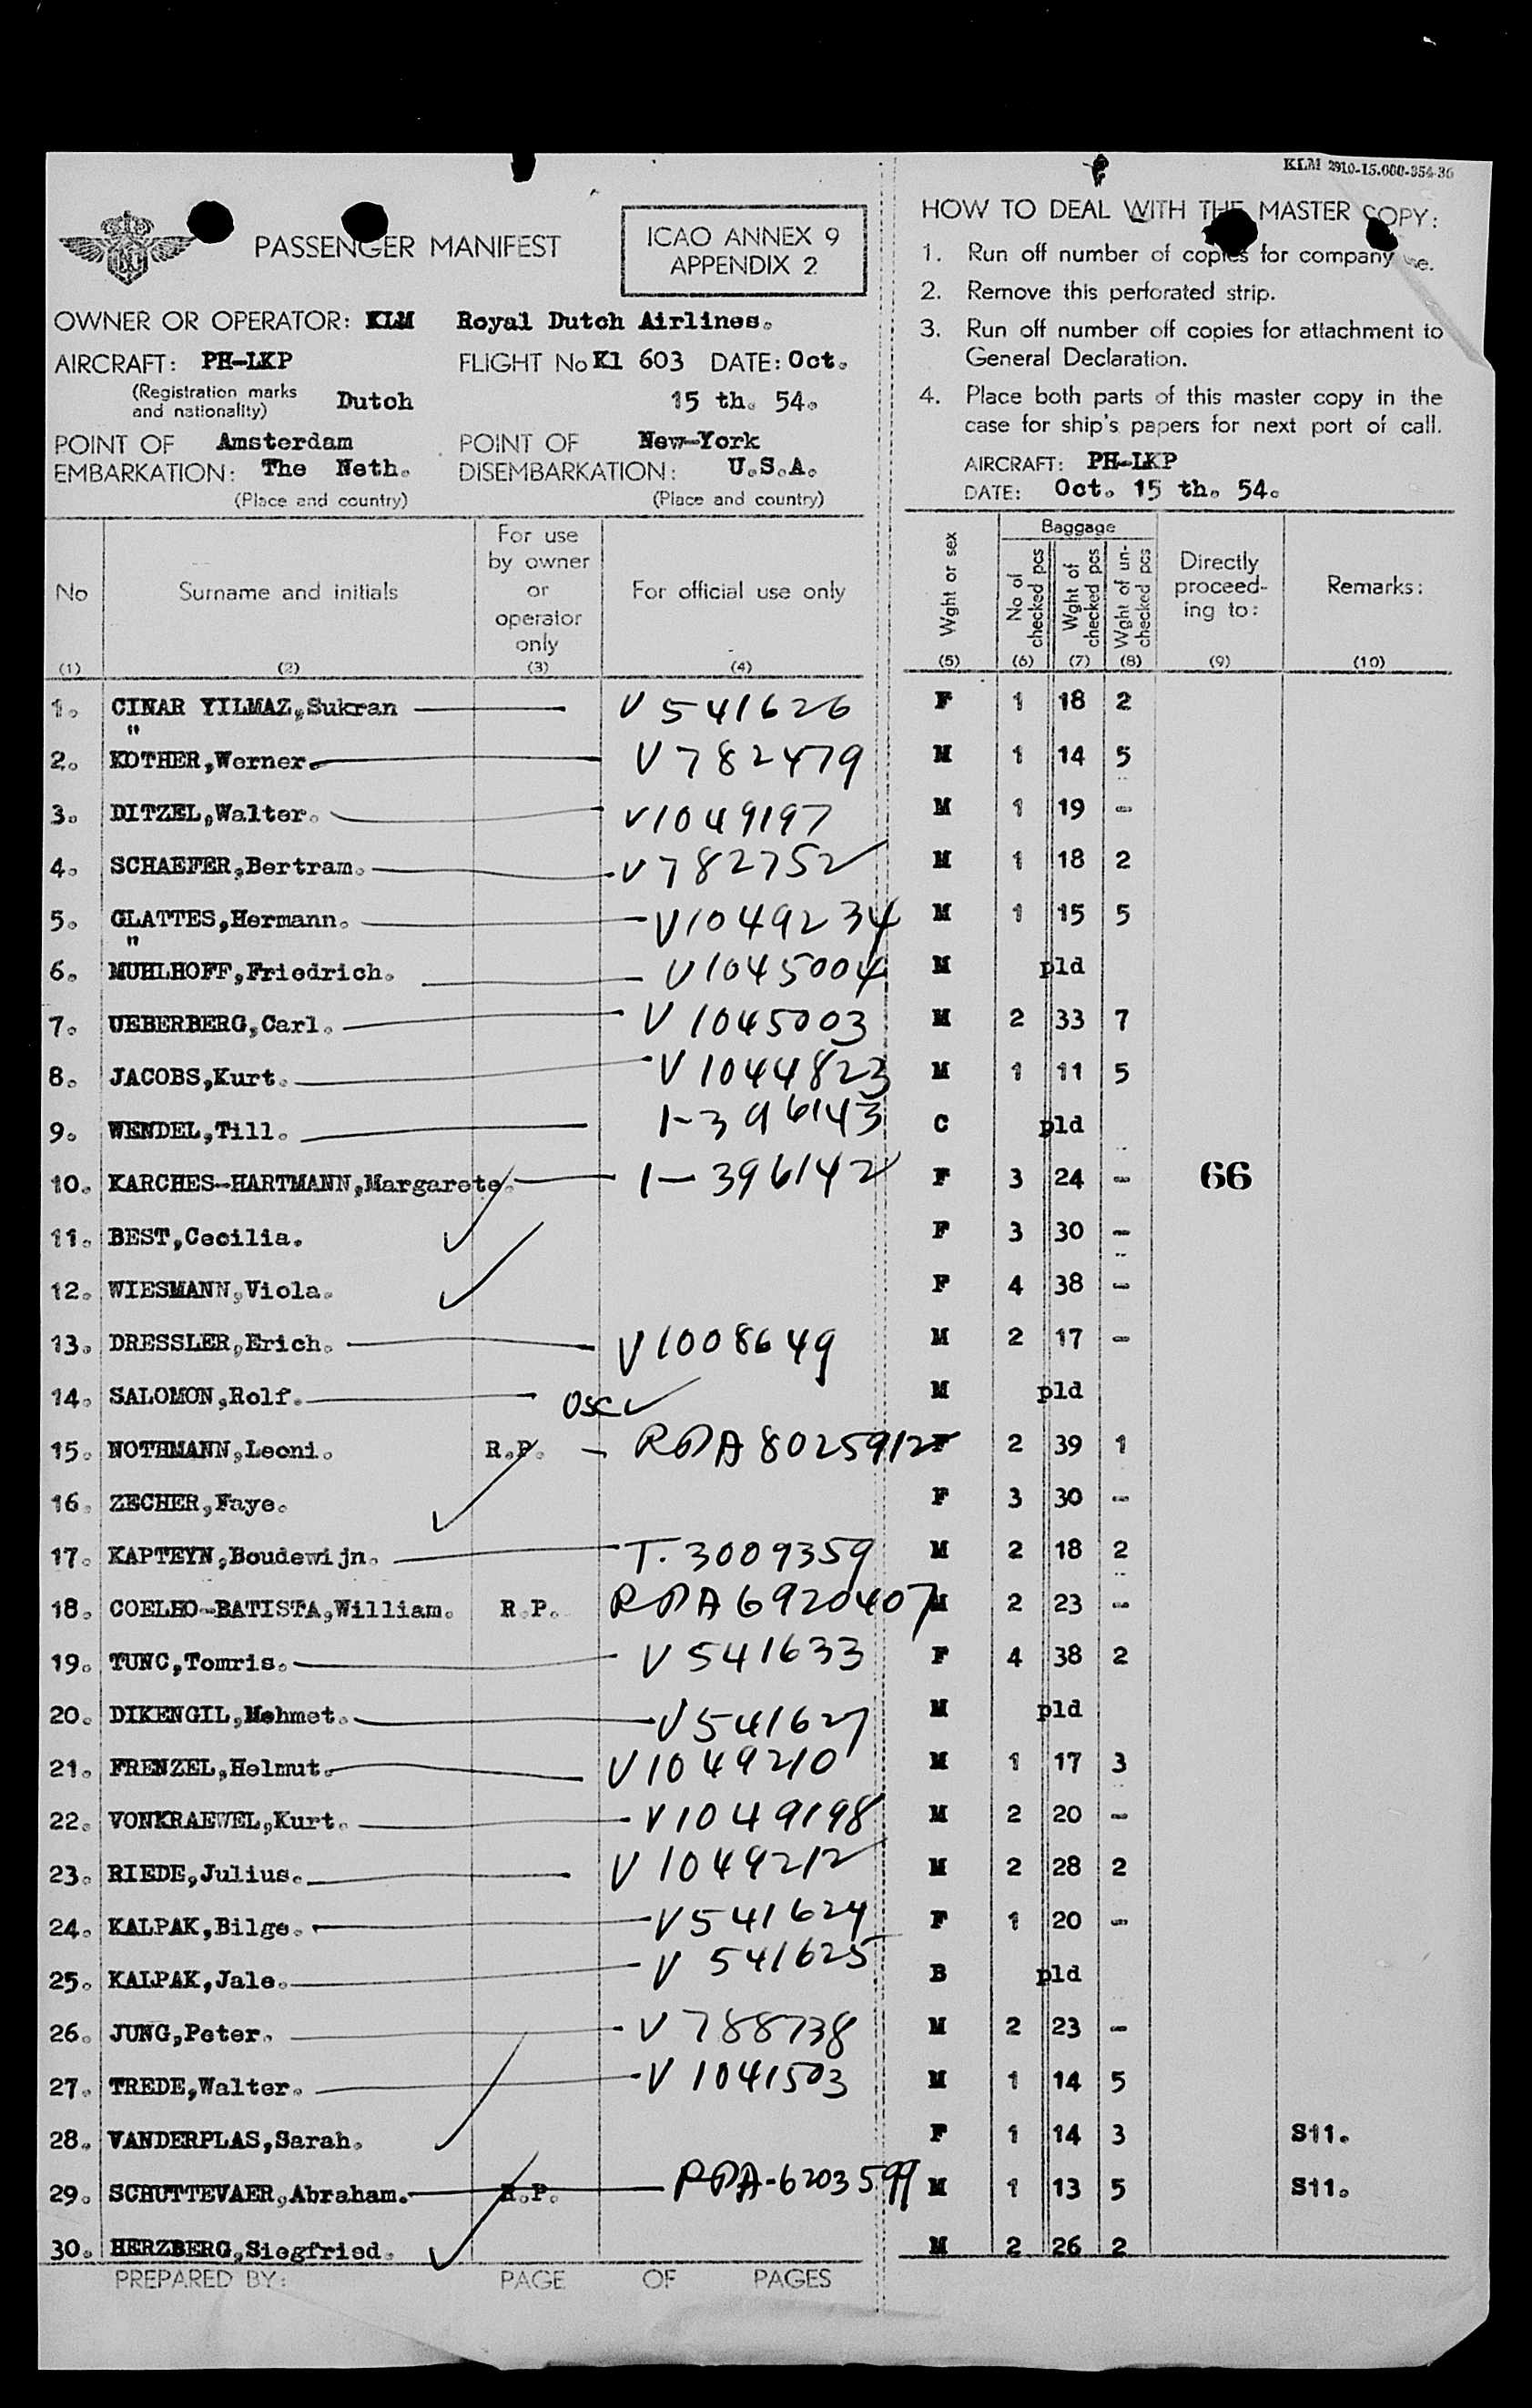 KLM 2910-15.000-954-36
PASSENGER MANIFEST
ICAO ANNEX 9
APPENDIX 2
OWNER OR OPERATOR: KLM Royal Dutch Airlines.
AIRCRAFT: PH-LKP FLIGHT No Kl 603 DATE: Oct.
(Registration marks and nationality) Dutch 15 th. 54.
POINT OF EMBARKATION: Amsterdam The Neth. POINT OF DISEMBARKATION: New-York U.S.A.
(Place and country) (Place and country)
HOW TO DEAL WITH THE MASTER COPY:
1. Run off number of copies for company use.
2. Remove this perforated strip.
3. Run off number off copies for attachment to
General Declaration.
4. Place both parts of this master copy in the
case for ship's papers for next port of call.
AIRCRAFT: PH-LKP
DATE: Oct. 15 th. 54.
No Surname and initials For use by owner or operator only For official use only Wght or sex Baggage No of checked pcs Wght of checked pcs Wght of un-checked pcs Directly proceed-ing to: Remarks:
(1) (2) (3) (4) (5) (6) (7) (8) (9) (10)
1. CINAR YILMAZ,Sukran V 541626 F 1 18 2
2. KÖTHER,Werner. V 782479 M 1 14 5
3. DITZEL,Walter. V1049197 M 1 19 -
4. SCHAEFER,Bertram. V 782752 M 1 18 2
5. GLATTES,Hermann. V1049234 M 1 15 5
6. MÜHLHOFF,Friedrich. V1045004 M pld
7. UEBERBERG,Carl. V 1045003 M 2 33 7
8. JACOBS,Kurt. V 1044823 M 1 11 5
9. WENDEL,Till. 1-396143 C pld
10. KARCHES-HARTMANN,Margarete. 1-396142 F 3 24 - 66
11. BEST,Cecilia. F 3 30 -
12. WIESMANN,Viola. F 4 38 -
13. DRESSLER,Erich. V1008649 M 2 17 -
14. SALOMON,Rolf. OSC M pld
15. NOTHMANN,Leoni. R.P. - RPA 8025912 F 2 39 1
16. ZECHER,Faye. F 3 30 -
17. KAPTEYN,Boudewijn. T. 3009359 M 2 18 2
18. COELHO-BATISTA,William. R.P. RPA 6920407 M 2 23 -
19. TUNC,Tomris. V 541633 F 4 38 2
20. DIKENGIL,Mehmet. V541627 M pld
21. FRENZEL,Helmut. V1049210 M 1 17 3
22. VONKRAEWEL,Kurt. V1049198 M 2 20 -
23. RIEDE,Julius. V 1049212 M 2 28 2
24. KALPAK,Bilge. V541624 F 1 20 -
25. KALPAK,Jale. V 541625 B pld
26. JUNG,Peter. V 788738 M 2 23 -
27. TREDE,Walter. V 1041503 M 1 14 5
28. VANDERPLAS,Sarah. F 1 14 3 S11.
29. SCHUTTEVAER,Abraham. R.P. RPA-6203599 M 1 13 5 S11.
30. HERZBERG,Siegfried. M 2 26 2
PREPARED BY: PAGE OF PAGES